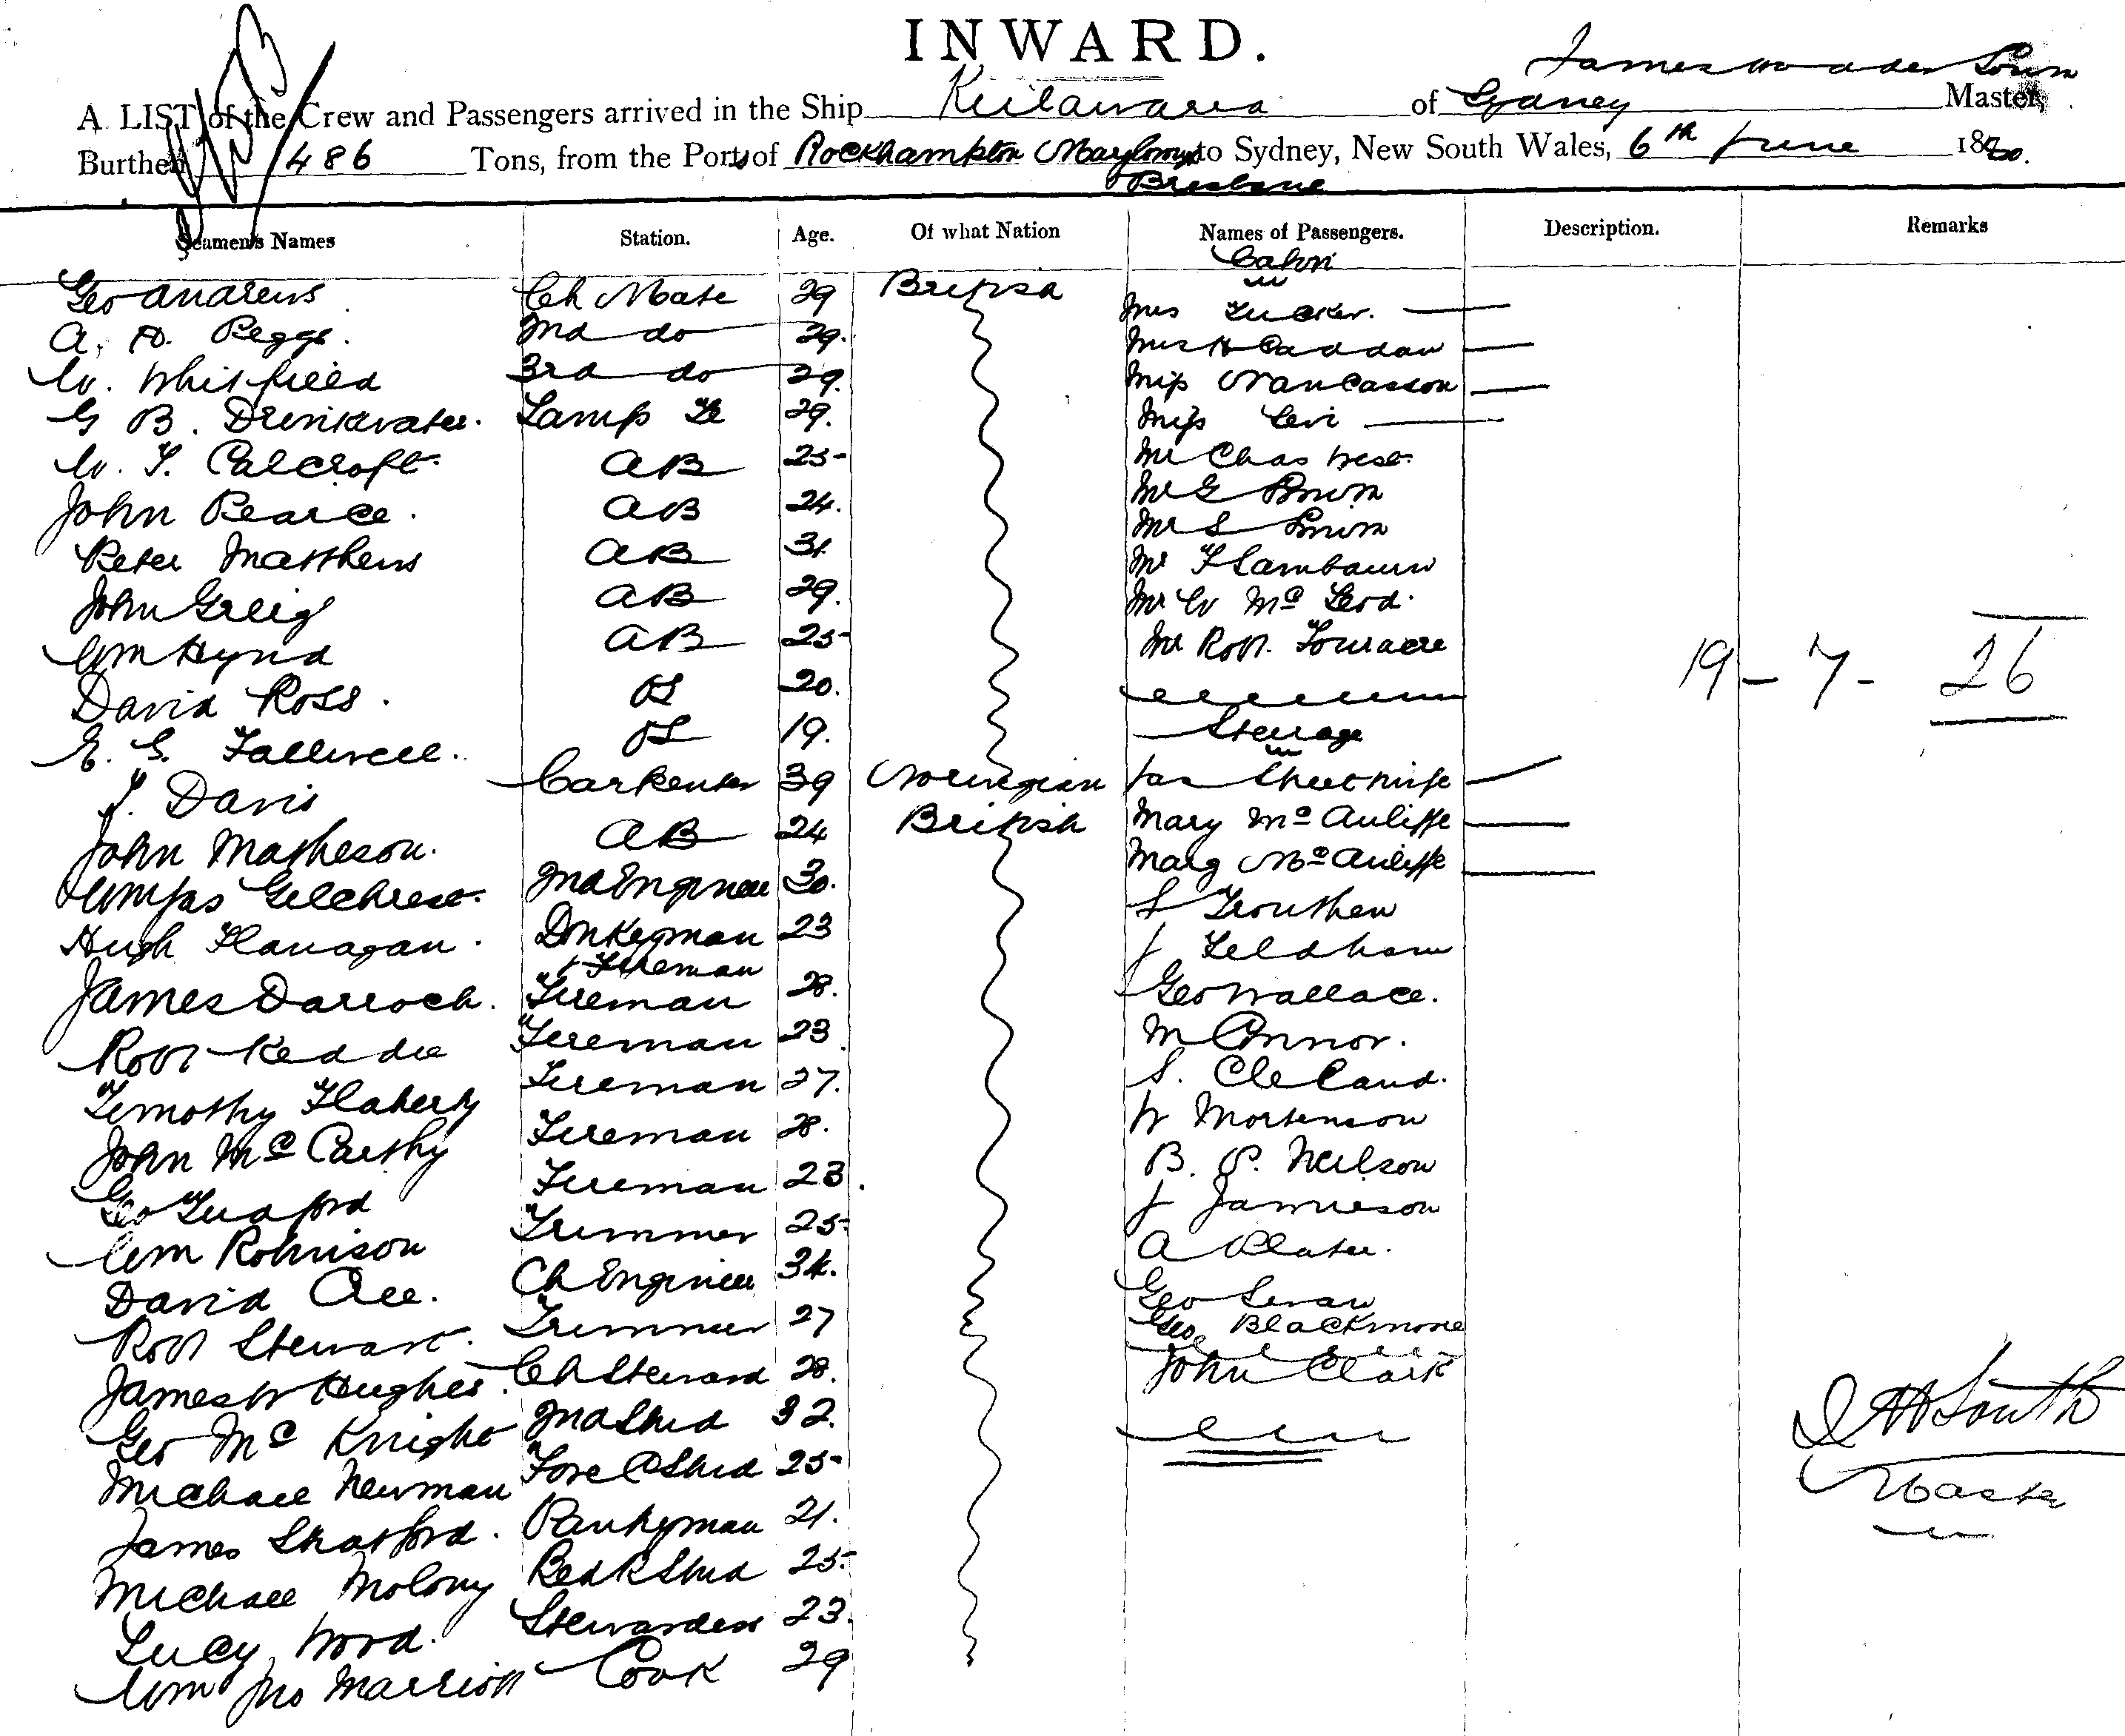 INWARD.
A LIST of the Crew and Passengers arrived in the Ship Keilawarra of Sydney Master,
Burthen 486 Tons, from the Ports of Rockhampton Maryboro to Sydney, New South Wales, 6th June 18
Brisbane
Seamen's Names Station. Age. Of what Nation Names of Passengers. Description. Remarks
Cabin
Geo Andrews Ch Mate 29 British Mrs Tucker.
A. D. Peggs. 2nd do 29. Mrs H Caddaw
W. Whitfield 3rd do 29. Miss
G B. Drinkwater. Lamp Tr 29. Miss Levi
W. T. Calcroft. AB 25 Mr Chas West
John Pearce. AB 24. Mr G Brown
Peter Matthews AB 31. Mr S
John Greig AB 29. Mr
Wm Hynd AB 25 Mr W Mc Leod.
David Ross. OS 20. Mr Robt. Fouracre
19-7-26
E. G. Talliwell. OS 19. Steerage
J. Davis Carpenter 39 Norwegian Jas
John Matheson. AB 24 British Mary Mc Auliffe
Gilchrist. 2nd Engineer 30. Marg Mc Auliffe
Hugh Flanagan. Donkeyman 23 S
& Fireman J Feldham
James Darroch. Fireman 28. Geo Wallace.
Robt Keddie Fireman 23. M Connor.
Timothy Flaherty Fireman 27. S. Cleland.
John Mc Carthy Fireman 28. W Mortenson
Geo Fireman 23. B. P. Neilson
Wm Robinson Trimmer 25 J Jamieson
David Orr. Ch Engineer 34. A Slater.
Robt Stewart. Trimmer 27 Geo
Geo Blackmore
James W Hughes. Ch Steward 28. John Clark
Geo Mc Knight 2nd Stwd 32.
Michael Newman Fore C Stwd 25
James Stratford. Pantryman 21.
Michael Molony Bed R Stwd 25
Lucy Wood. Stewardess 23.
Wm Jno Marriott Cook 29
South
Master